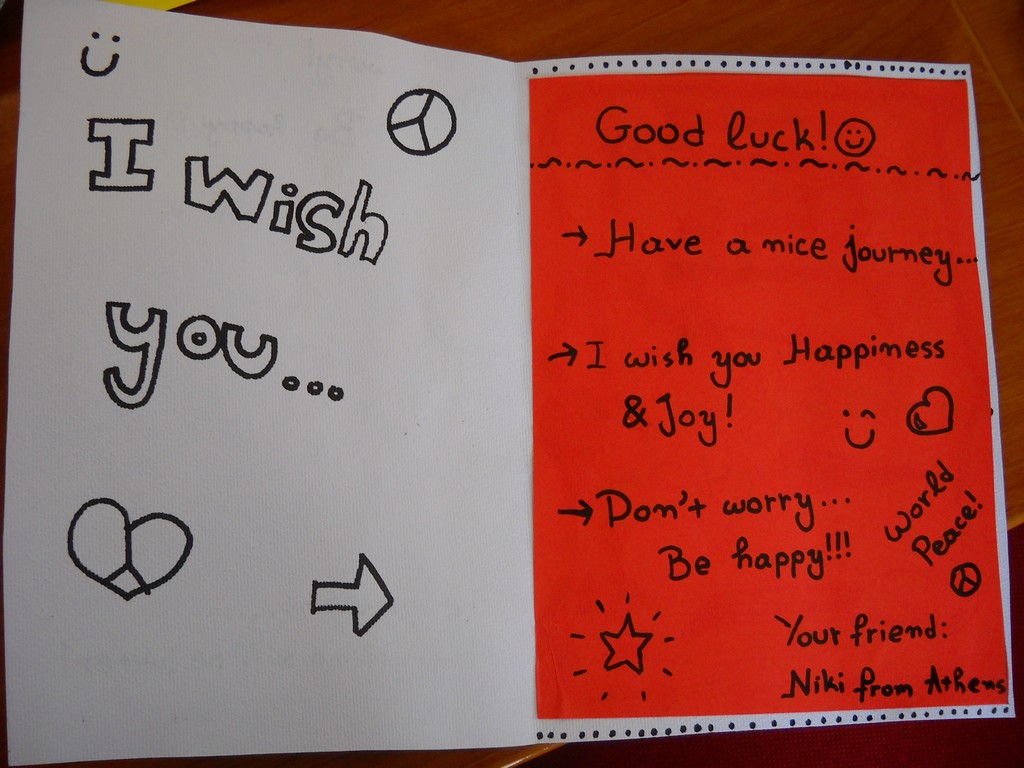 I wish
you...
Good luck!
→ Have a nice journey...
→ I wish you Happiness
& Joy!
→ Don't worry...
Be happy!!!
World
Peace!
Your friend:
Niki from Athens